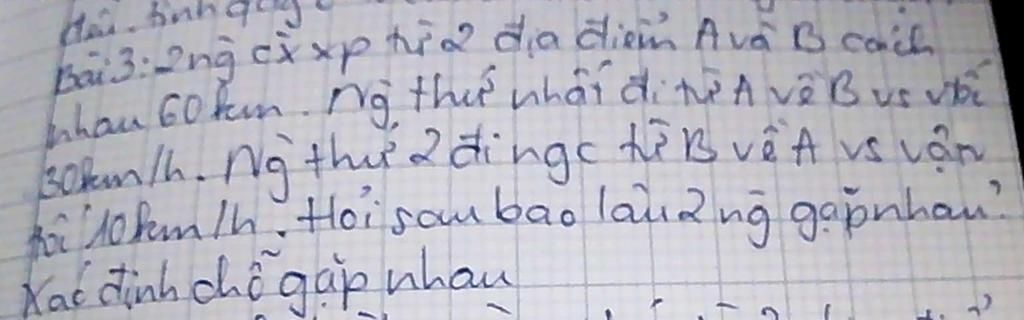 Bài 3: 2 ng cx xp từ 2 địa điểm A và B cách
nhau 60km. Ng thứ nhất đi từ A về B vs vtốc
30km/h. Ng thứ 2 đi ngc từ B về A vs vận
tốc 10km/h. Hỏi sau bao lâu 2 ng gặp nhau?
Xác định chỗ gặp nhau